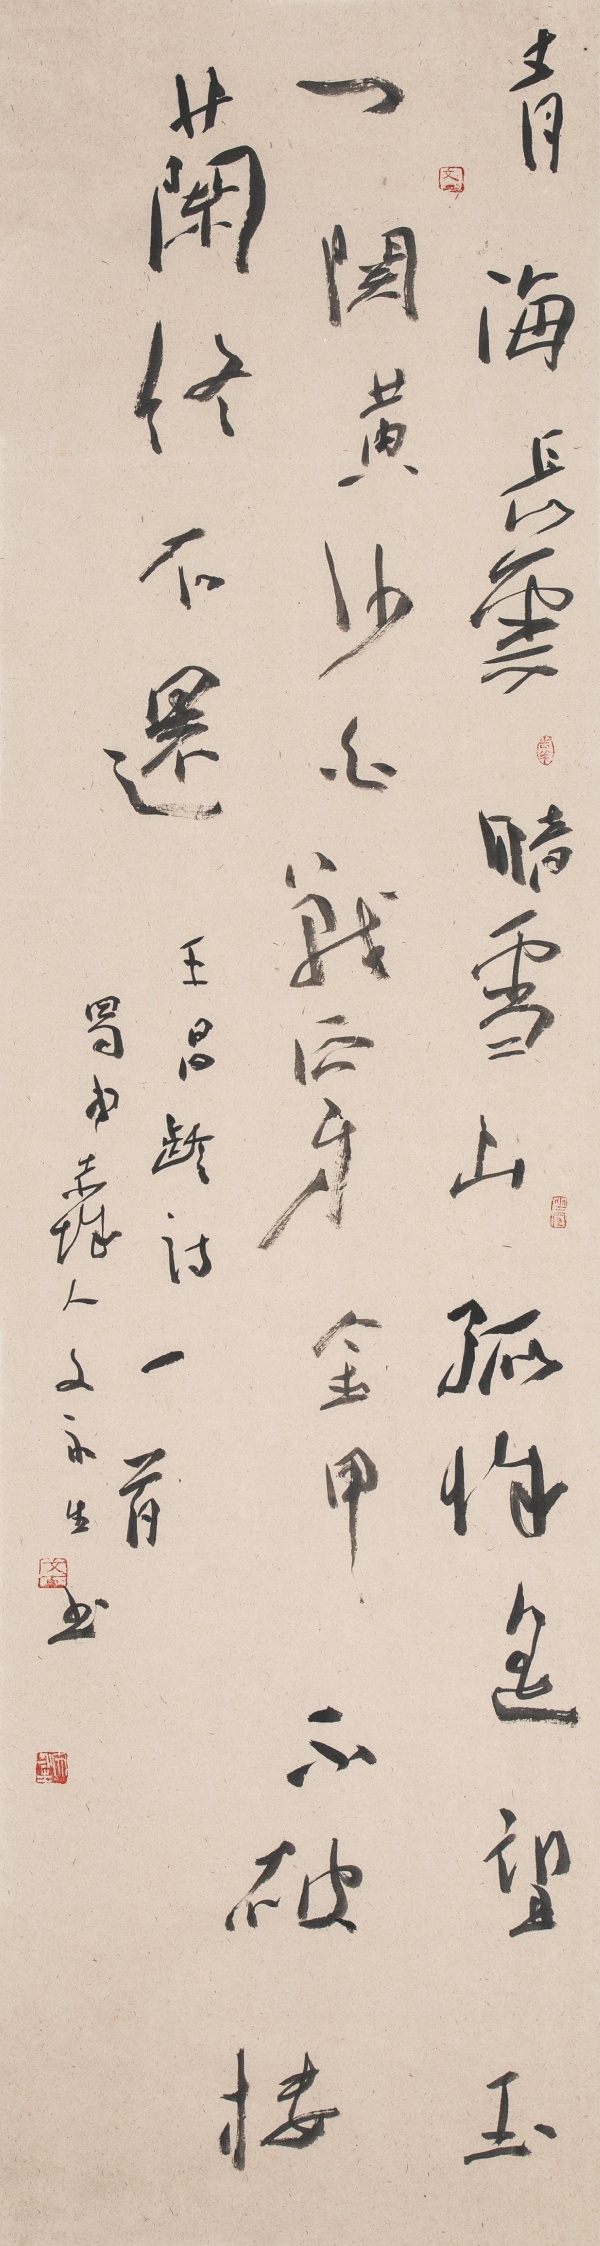 青海長雲暗雪山孤城遙望玉
門關黃沙百戰穿金甲不破樓
蘭終不還
王昌齡詩一首
蜀中赤城人文永生书